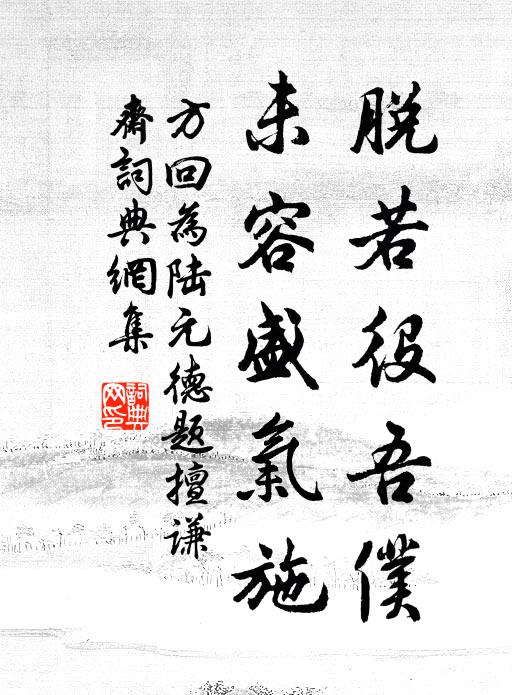 脫若役吾僕
未容盛氣施
方回為陆元德题擅谦
齋詞典網集
詞典
网印